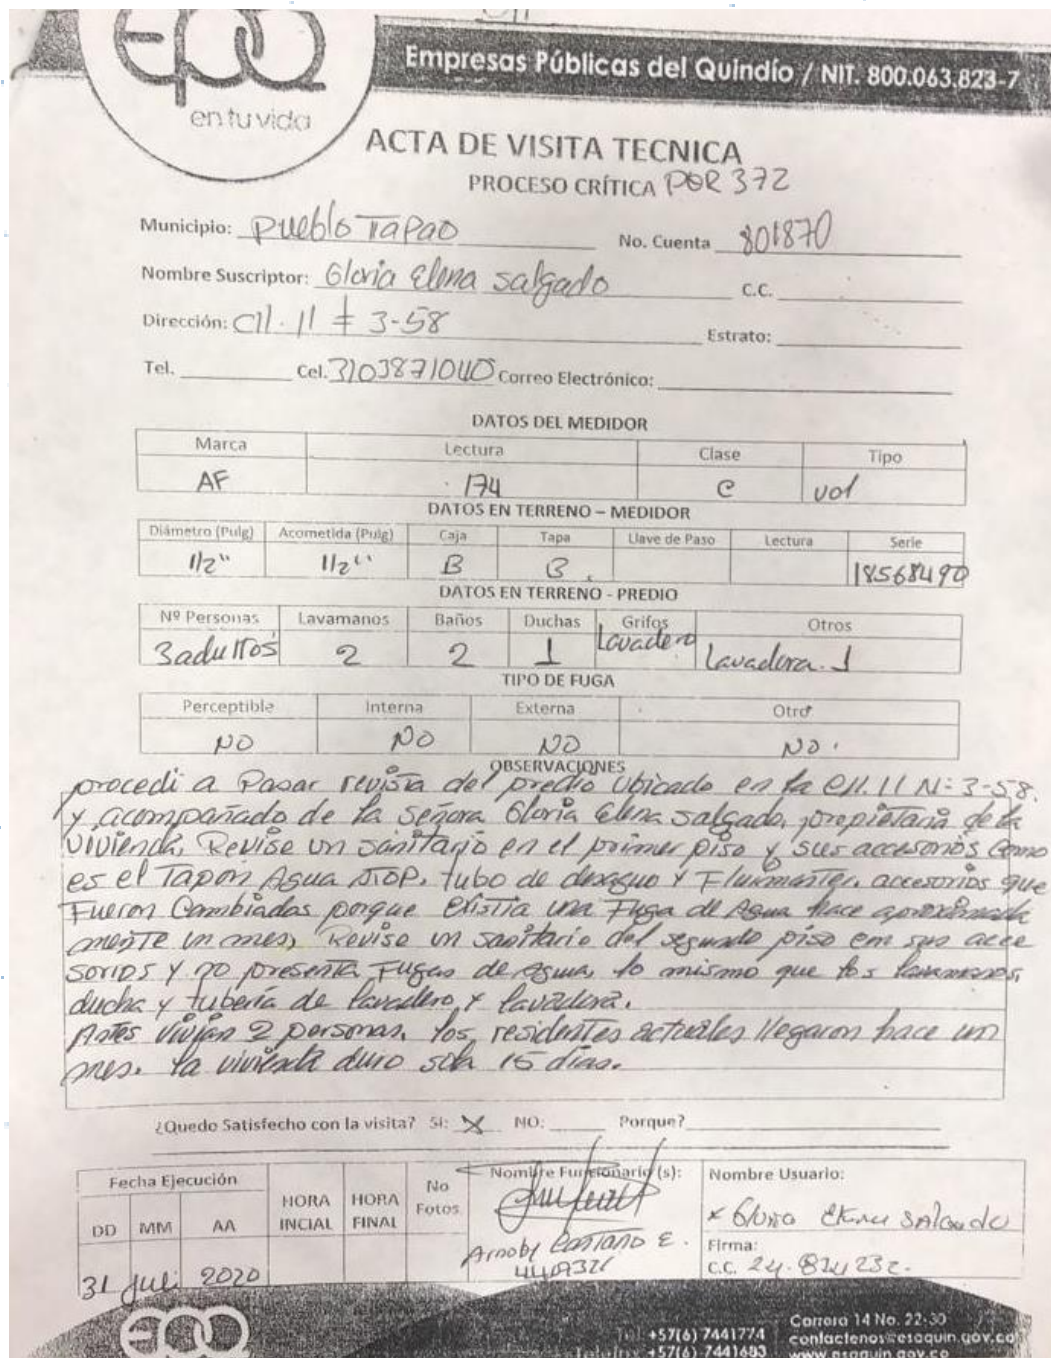 epq
en tu vida
Empresas Públicas del Quindío / NIT. 800.063.823-7
ACTA DE VISITA TECNICA
PROCESO CRÍTICA PQR 372
Municipio: Pueblo Tapao No. Cuenta 801870
Nombre Suscriptor: Gloria Elena Salgado C.C.
Dirección: Cll. 11 # 3-58 Estrato:
Tel. Cel. 3103871040 Correo Electrónico:
DATOS DEL MEDIDOR
Marca Lectura Clase Tipo
AF 174 C vol
DATOS EN TERRENO – MEDIDOR
Diámetro (Pulg) Acometida (Pulg) Caja Tapa Llave de Paso Lectura Serie
1/2" 1/2" B B. 18568490
DATOS EN TERRENO - PREDIO
Nº Personas Lavamanos Baños Duchas Grifos Otros
3 adultos 2 2 1 Lavadero Lavadora. 1
TIPO DE FUGA
Perceptible Interna Externa Otro
NO NO NO NO.
OBSERVACIONES
procedi a Pasar revista del predio Ubicado en la Cll. 11 N: 3-58.
y acompañado de la señora Gloria Elena salgado, propietaria de la
vivienda, Revise un sanitario en el primer piso y sus accesorios como
es el Tapon Agua STOP, tubo de desague y Fluxmaster, accesorios que
Fueron Cambiados porque existia una Fuga de Agua hace aproximada
mente un mes, Revise un sanitario del segundo piso em sus acce
sorios y no presenta Fugas de agua, lo mismo que los lavamanos,
ducha y tuberia de lavadero y lavadora.
Antes vivian 2 personas. los residentes actuales llegaron hace un
mes. la vivienda duro sola 15 dias.
¿Quedo Satisfecho con la visita? Si: X NO: Porque?
Fecha Ejecución HORA INCIAL HORA FINAL No Fotos Nombre Funcionario (s): Nombre Usuario:
DD MM AA
x Gloria Elena Salgado
Arnoby Castaño E.
4409321
Firma:
C.C. 24.834232.
31 Juli 2020
epq
Carrera 14 No. 22-30
Tel: +57(6) 7441774 contactenos@esaquin.gov.co
Telefax +57(6) 7441683 www.esaquin.gov.co